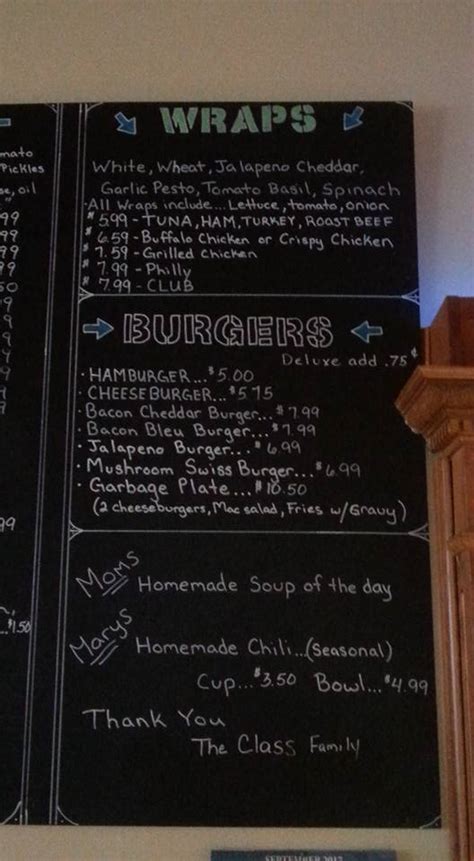 WRAPS
White, Wheat, Jalapeno Cheddar,
Garlic Pesto, Tomato Basil, Spinach
·All Wraps include... Lettuce, tomato, onion
$5.99 - TUNA, HAM, TURKEY, ROAST BEEF
$6.59 - Buffalo Chicken or Crispy Chicken
$7.59 - Grilled Chicken
$7.99 - Philly
$7.99 - CLUB
BURGERS
Deluxe add .75¢
· HAMBURGER...$5.00
· CHEESEBURGER...$5.75
· Bacon Cheddar Burger...$7.99
· Bacon Bleu Burger...$7.99
· Jalapeno Burger...$6.99
· Mushroom Swiss Burger...$6.99
· Garbage Plate...$10.50
(2 cheeseburgers, Mac salad, Fries w/Gravy)
Moms Homemade Soup of the day
Marys Homemade Chili...(Seasonal)
Cup...$3.50 Bowl...$4.99
Thank You
The Class Family
mato
Pickles
se, oil
99
99
99
99
50
9
9
9
9
9
99
...$1.50
SEPTEMBER 2017